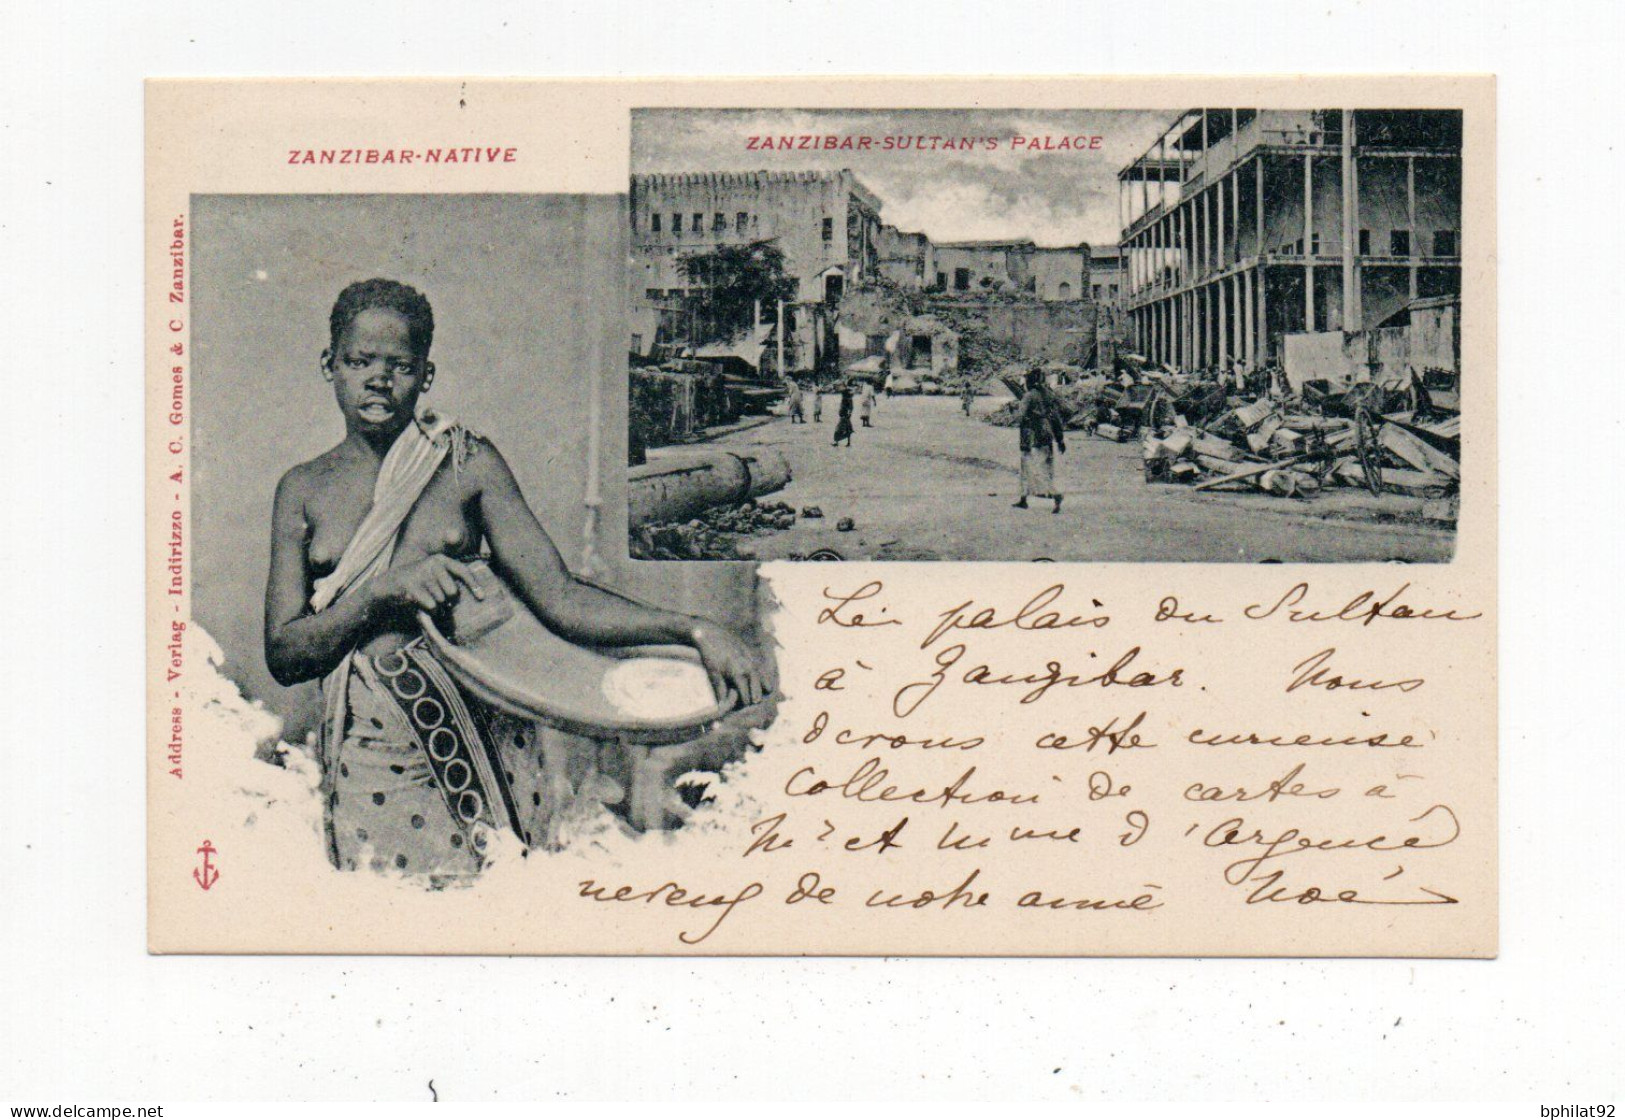 ZANZIBAR-NATIVE
ZANZIBAR-SULTAN'S PALACE
Address - Verlag - Indirizzo - A. C. Gomes & C Zanzibar.
Le palais du Sultan
à Zanzibar. Nous
devons cette curieuse
collection de cartes à
Mr et Mme d'Argencé
neveux de notre ami Noé
bphilat92